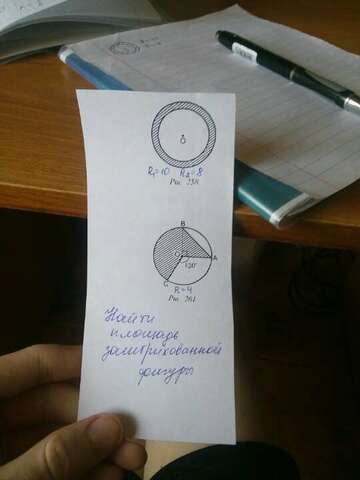 O
R₁=10 R₂=8
Рис. 258
B
O
A
120°
C
R=4
Рис. 261
Найти
площадь
заштрихованной
фигуры